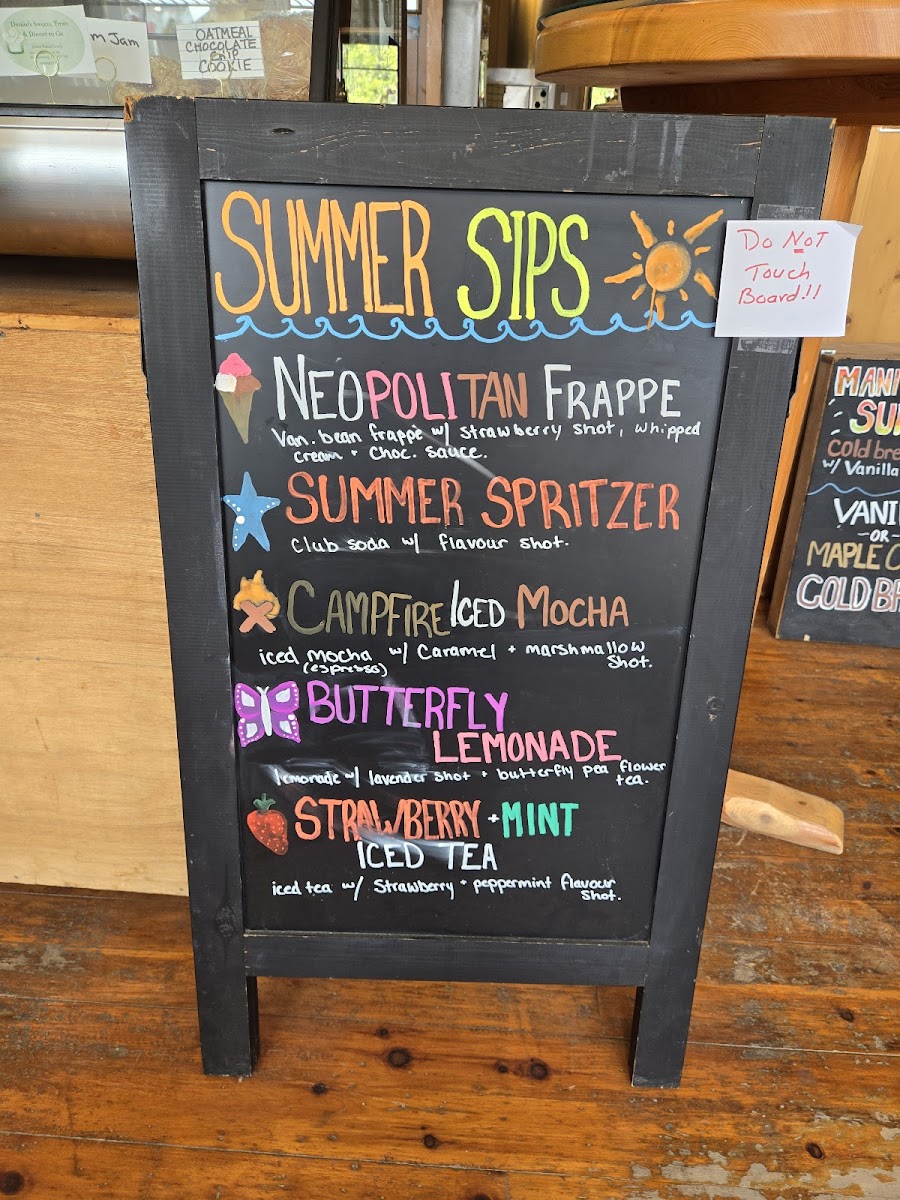 Denise's Sweets, Treats
& Dinners to Go
m Jam
OATMEAL
CHOCOLATE
CHIP
COOKIE
SUMMER SIPS
Do NoT
Touch
Board!!
NEOPOLITAN FRAPPE
Van. bean frappe w/ strawberry shot, whipped
cream + choc. sauce.
SUMMER SPRITZER
Club soda w/ flavour shot.
CAMPFIRE ICED MOCHA
iced mocha w/ Caramel + marshmallow
(espresso)
shot.
BUTTERFLY
LEMONADE
lemonade w/ lavender shot + butterfly pea flower
tea.
STRAWBERRY + MINT
ICED TEA
iced tea w/ Strawberry + peppermint flavour
shot.
MANI
SU
Cold bre
w/ Vanilla
VANI
-OR-
MAPLE C
COLD BR